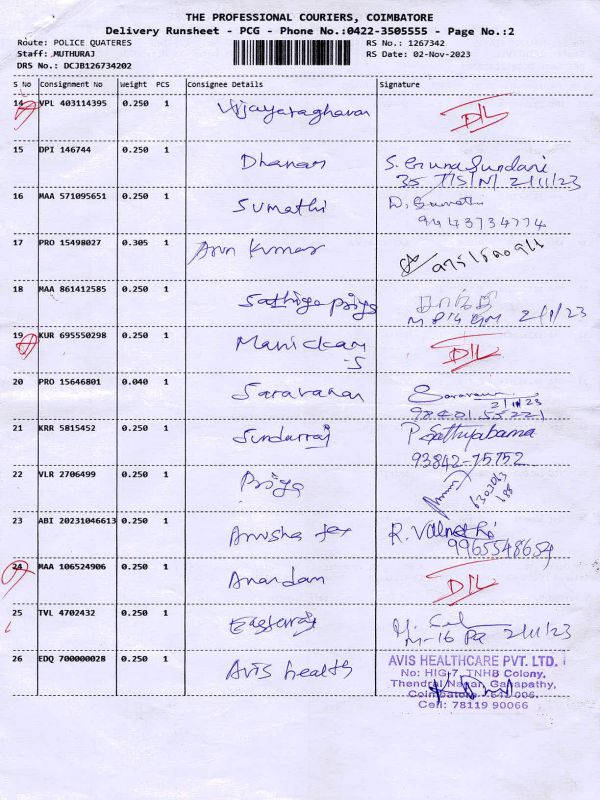 THE PROFESSIONAL COURIERS, COIMBATORE
Delivery Runsheet - PCG - Phone No.:0422-3505555 - Page No.:2
Route: POLICE QUATERES
RS No.: 1267342
Staff: MUTHURAJ
RS Date: 02-Nov-2023
DRS No.: DCJB126734202
S No Consignment No Weight PCS Consignee Details Signature
14 VPL 403114395 0.250 1 Vijayaraghavan DIL
15 DPI 146744 0.250 1 Dhanam S.
35 2/11/23
16 MAA 571095651 0.250 1 Sumathi D. Sumathi
9443734774
17 PRO 15498027 0.305 1 Arun Kumar
18 MAA 861412585 0.250 1 Sathiya priya
2/11/23
19 KUR 695550298 0.250 1 Manickam DIL
-S
20 PRO 15646801 0.040 1 Saravanan
2/11/23
98401 55221
21 KRR 5815452 0.250 1 Sundarraj P. Sathyabama
93842-75752
22 VLR 2706499 0.250 1 Priya
23 ABI 20231046613 0.250 1 Anusha R.
9965548654
24 MAA 106524906 0.250 1 Anandam DIL
25 TVL 4702432 0.250 1
2/11/23
26 EDQ 700000028 0.250 1 Avis health AVIS HEALTHCARE PVT. LTD.
No: HIG-7, TNHB Colony,
Thendral Nagar, Ganapathy,
Coimbatore - 641 006.
Cell: 78119 90066